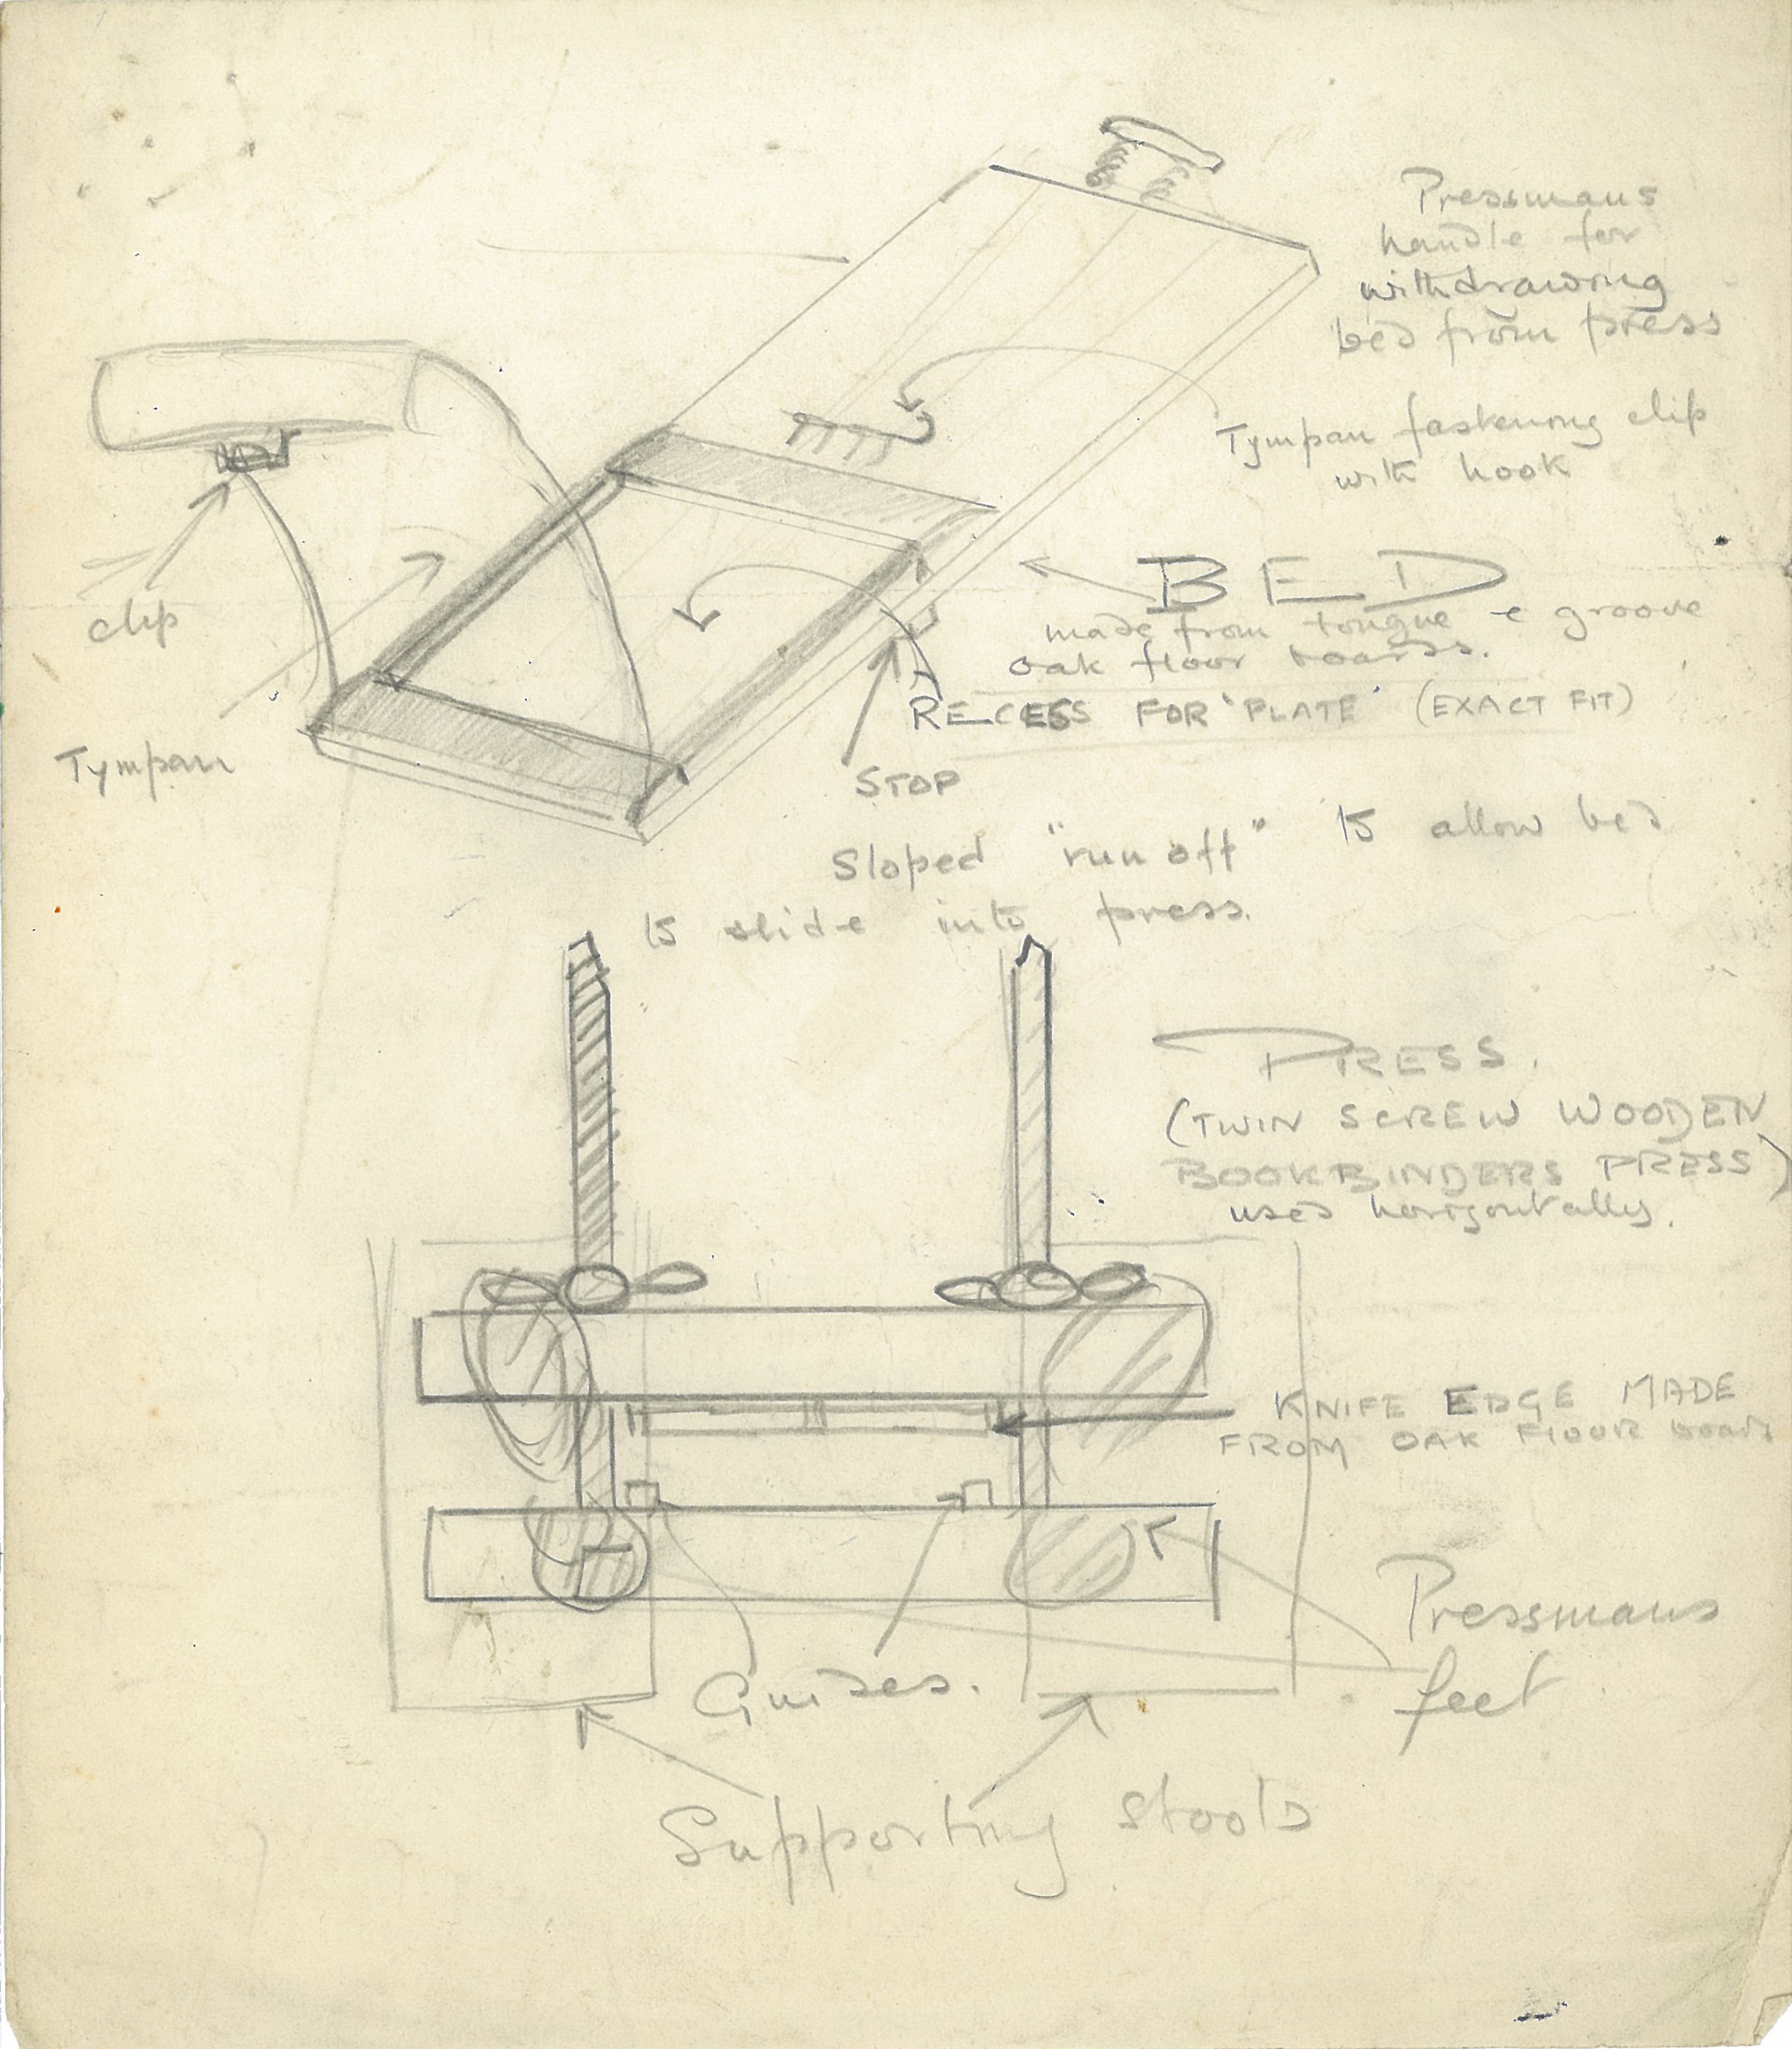 Pressmans
handle for
withdrawing
bed from press
Tympan fastening clip
with hook
BED
made from tongue & groove
oak floor boards.
RECESS FOR 'PLATE' (EXACT FIT)
clip
Tympan
STOP
Sloped "run off" to allow bed
to slide into press.
PRESS.
(TWIN SCREW WOODEN
BOOKBINDERS PRESS)
used horizontally.
KNIFE EDGE MADE
FROM OAK FLOOR boards
Pressmans
feet
Guides.
Supporting stools